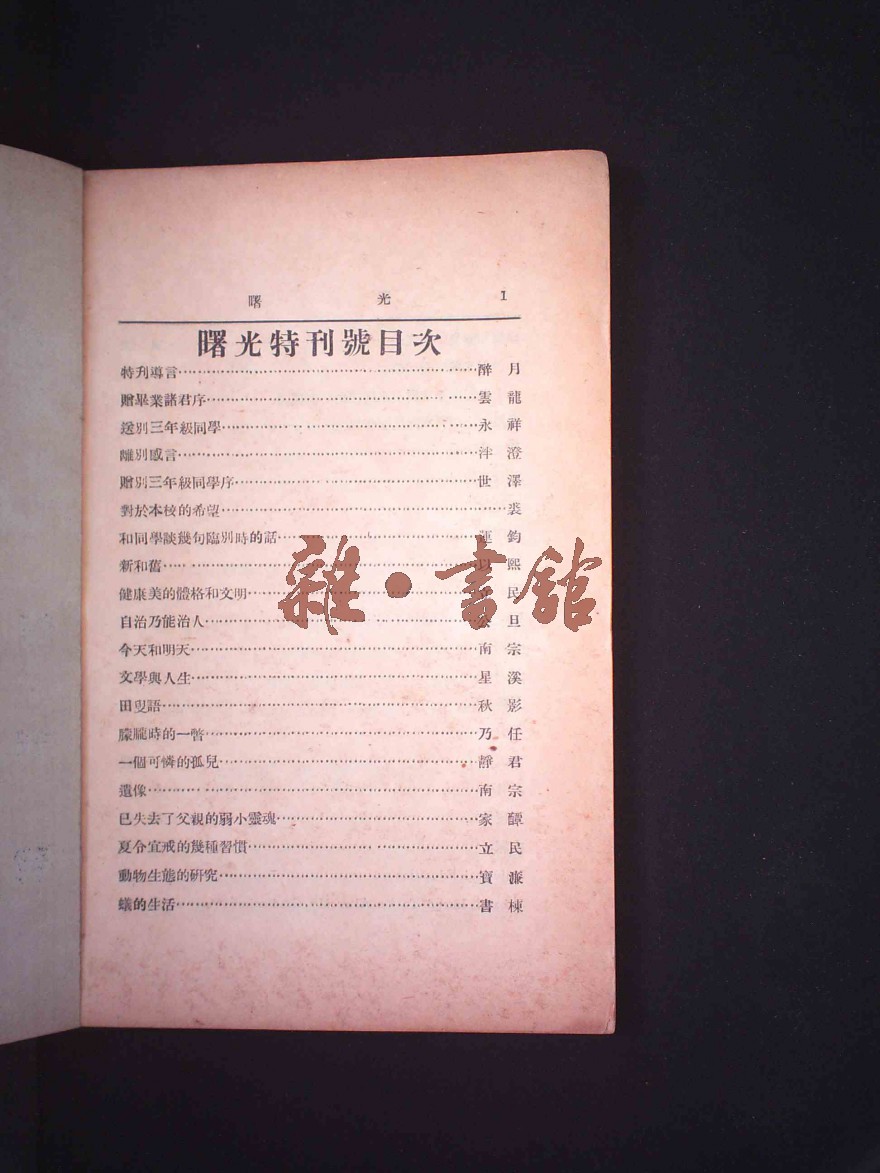 曙光 1
曙光特刊號目次
特刋導言………醉月
贈畢業諸君序………雲龍
送別三年級同學………永祥
離別感言………泮澄
贈別三年級同學序………世澤
對於本校的希望………裘
和同學談幾句臨別時的話………蓮鈞
新和舊………以熙
健康美的體格和文明………民
自治乃能治人………公旦
今天和明天………南宗
文學與人生………星溪
田叟語………秋影
朦朧時的一瞥………乃任
一個可憐的孤兒………靜君
遺像………南宗
已失去了父親的弱小靈魂………家驔
夏令宜戒的幾種習慣………立民
動物生態的研究………寶濂
蟻的生活………書棟
雜·書館